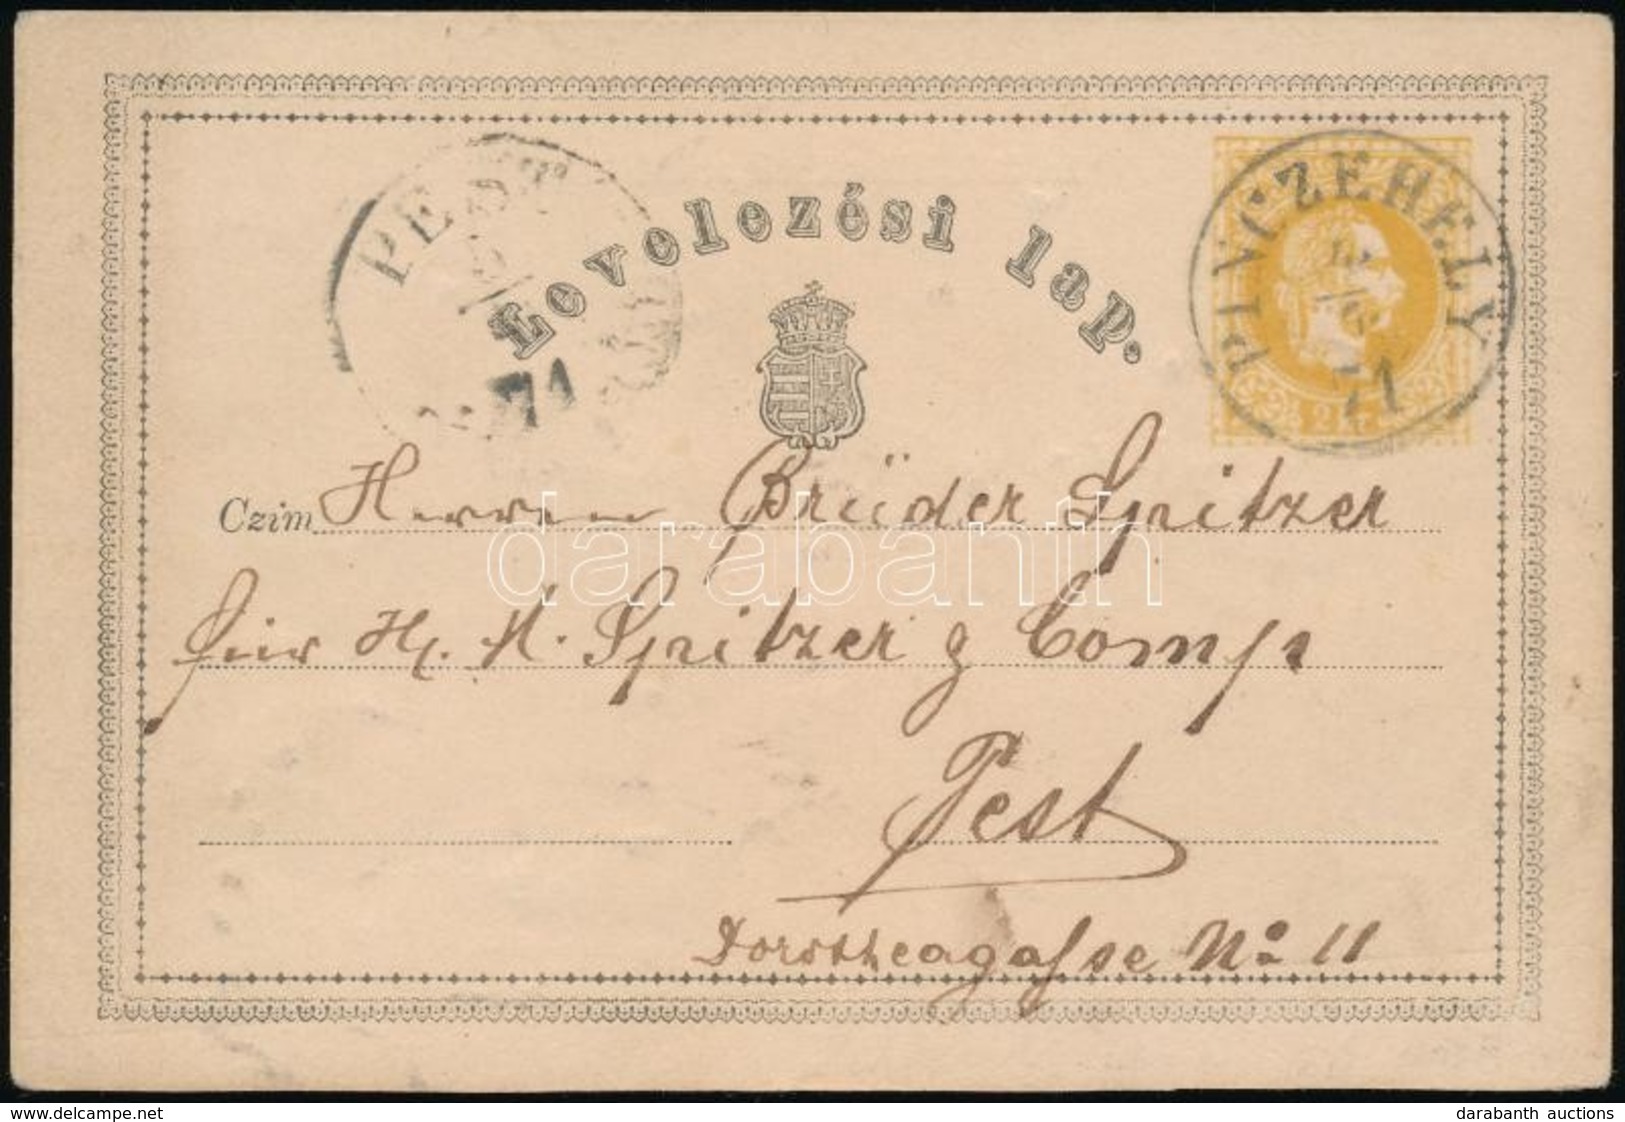 Levelezési lap.
PEST
71
PINCZEHELY
71
2 kr
Czim Herren Brüder Spitzer
für H. H. Spitzer & Comp
Pest
Dorotheagasse No 11
darabanth
darabanth auctions
delcampe.net